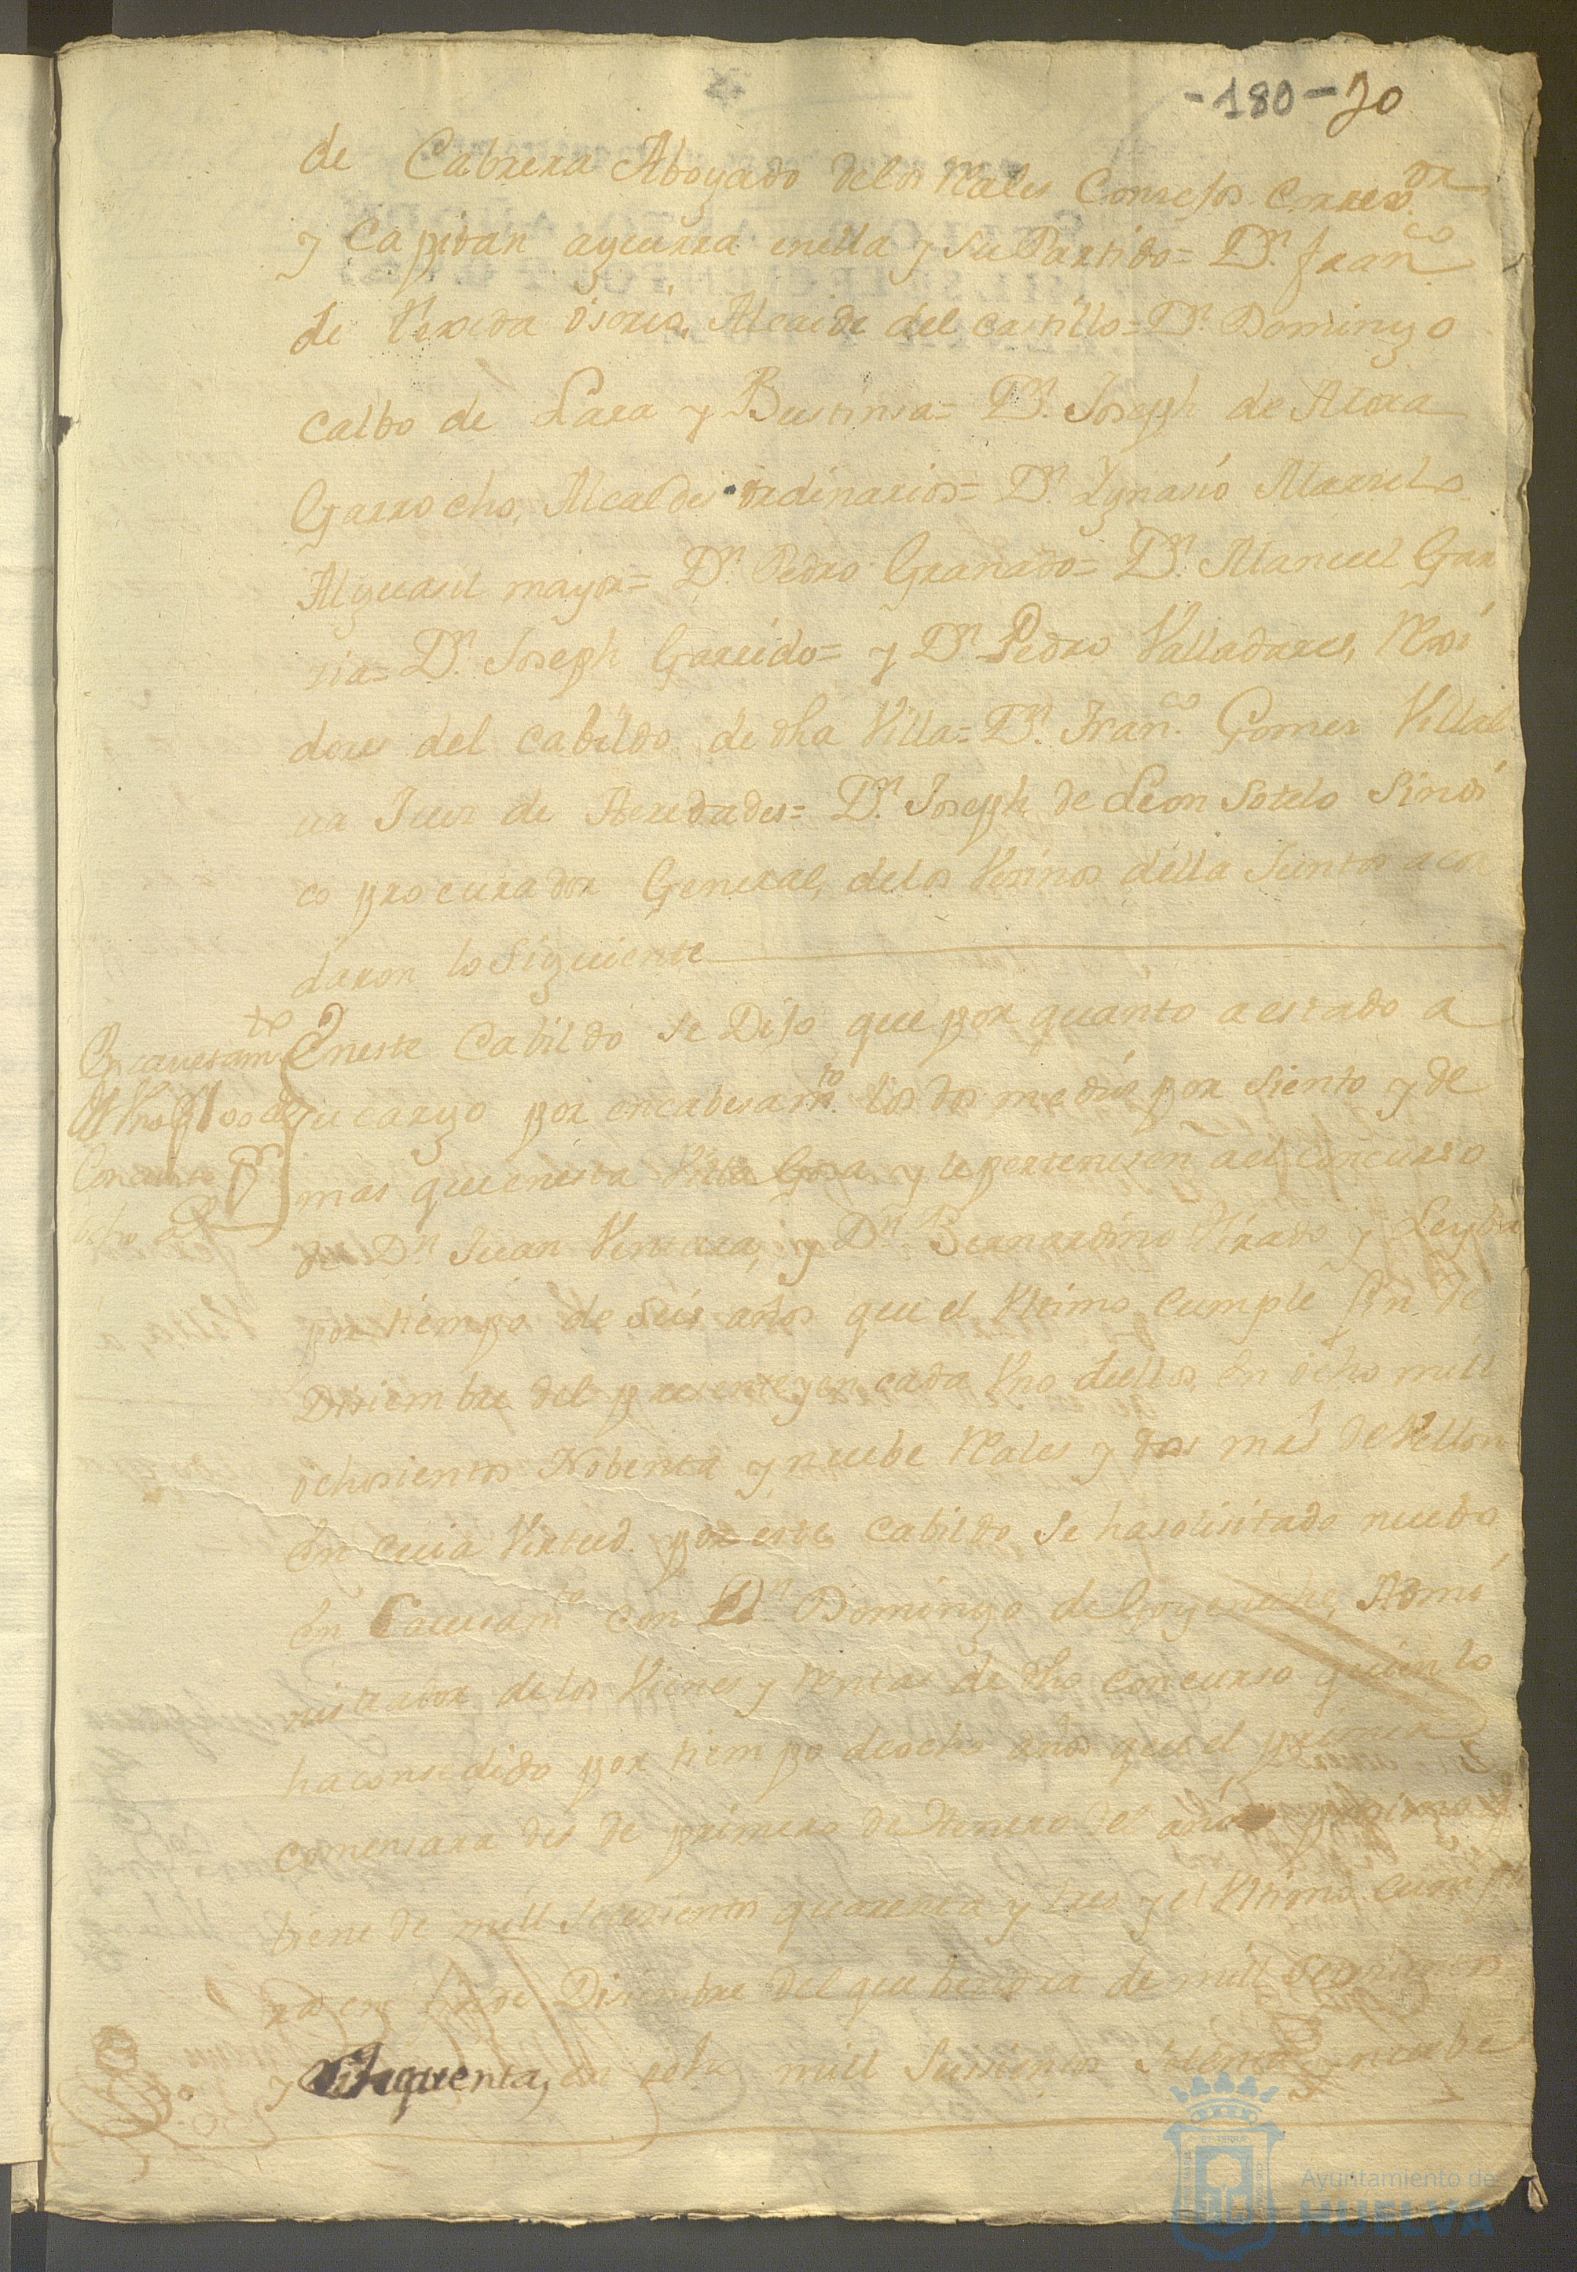 -180- 70
de Cabrera Abogado delos Rales Consejos Correxor
y Capitan aguerra enella y su Partido= Dn. Franco
de Texeda Osorio, Alcaide del castillo= Dn. Domingo
calbo de Lara y Bustinsa= Dn. Joseph de Mora
Garrocho, Alcaldes ordinarios= Dn. Ygnasio
Alguasil mayor= Dn. Pedro Granado= Dn. Manuel Gar
sia= Dn. Joseph Garrido= y Dn. Pedro Valladares, Rexi
dores del cabildo de dha Villa= Dn. Franco. Gomes Villal
ua Jues de Heredades= Dn. Joseph de Leon Sotelo Sindi
co procurador General, delos Vesinos della Juntos acor
daron lo Siguiente
Eneste Cabildo se Dijo que por quanto a estado a
su cargo por encabesamto. los dos medios por siento y de
mas que enesta Villa Gosa y le pertenesen a el concurso
de Dn Juan Ventura, y Dn. Bernardino Tirado y Leyba
por tiempo de seis años que el Vltimo Cumple fin de
Disiembre del presente y en cada Vno dellos, En ocho mill
ochosientos Nobenta y nuebe Rales y dos mrs de Vellon
En cuia Virtud por este Cabildo se ha solisitado nuebo
En con Dn Domingo de Goyeneche, Admi
nistrador de los Vienes y Rentas de dho Concurso quien lo
ha consedido por tiempo de ocho años que el primero
comensara des de primero de Henero del año proximo q
biene de mill setesientos quarenta y tres y el Vltimo cumpli
ra en fin de Disiembre del que bendra de mill setesientos
y Cinquenta, en ocho mill Seissientos setenta y nuebe
Encauesamto
Concurso
Ayuntamiento de
HUELVA